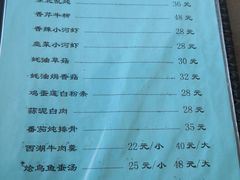 36 元
香芹牛柳 32 元
香辣小河虾 28 元
韭菜小河虾 28 元
蚝油草菇 30 元
蚝油焗香菇 32 元
鸡蛋莲白粉条 28 元
蒜泥白肉 28 元
番茄炖排骨 35 元
西湖牛肉羹 22元/小 40元/大
烩乌鱼蛋汤 25元/小 48元/大